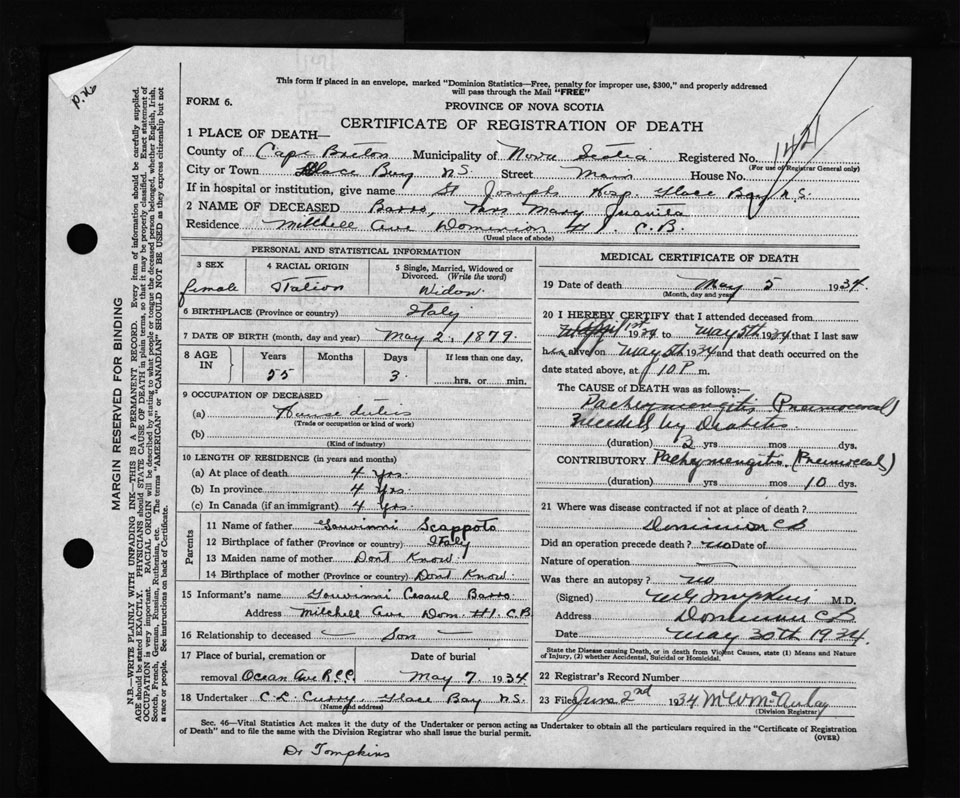 P.76
This form if placed in an envelope, marked "Dominion Statistics—Free, penalty for improper use, $300," and properly addressed
will pass through the Mail "FREE"
FORM 6.
PROVINCE OF NOVA SCOTIA
CERTIFICATE OF REGISTRATION OF DEATH
1 PLACE OF DEATH—
County of Cape Breton Municipality of Nova Scotia Registered No. 1421
(For use of Registrar General only)
City or Town Glace Bay N.S. Street Main House No.
If in hospital or institution, give name St Josephs Hosp. Glace Bay N.S.
2 NAME OF DECEASED Barro, Mrs Mary Juanita
Residence Mitchell Ave Dominion #1. C.B.
(Usual place of abode)
PERSONAL AND STATISTICAL INFORMATION
3 SEX female
4 RACIAL ORIGIN Italion
5 Single, Married, Widowed or Divorced. (Write the word) Widow
6 BIRTHPLACE (Province or country) Italy
7 DATE OF BIRTH (month, day and year) May 2, 1879.
8 AGE IN Years 55 Months Days 3. If less than one day, ....hrs. or ....min.
9 OCCUPATION OF DECEASED
(a) House duties
(Trade or occupation or kind of work)
(b)
(Kind of industry)
10 LENGTH OF RESIDENCE (in years and months)
(a) At place of death 4 yrs.
(b) In province 4 yrs
(c) In Canada (if an immigrant) 4 yrs.
Parents
11 Name of father Gouvinni Scappoto
12 Birthplace of father (Province or country) Italy
13 Maiden name of mother Dont Know.
14 Birthplace of mother (Province or country) Dont Know.
15 Informant's name Gouvinni Barro
Address Mitchell Ave Dom. #1. C.B
16 Relationship to deceased — Son —
17 Place of burial, cremation or removal Ocean Ave R.C.C. Date of burial May 7, 1934
18 Undertaker C.L. Curry, Glace Bay N.S.
(Name and address)
MEDICAL CERTIFICATE OF DEATH
19 Date of death May 5 1934.
(Month, day and year)
20 I HEREBY CERTIFY that I attended deceased from
April 1st 1934 to May 5th 1934 that I last saw
h alive on May 5th 1934 and that death occurred on
date stated above, at 10 P. m.
The CAUSE OF DEATH was as follows:—
Pachymengitis
by Diabetis
(duration) yrs mos dys.
CONTRIBUTORY Pachymengitis
(duration) yrs mos 10 dys.
21 Where was disease contracted if not at place of death?
Dominion CB
Did an operation precede death? no Date of
Nature of operation —
Was there an autopsy? no
(Signed) Tompkins M.D.
Address Dominion CB
Date May 30th 1934.
State the Disease causing Death, or in death from Violent Causes, state (1) Means and Nature
of Injury, (2) whether Accidental, Suicidal or Homicidal.
22 Registrar's Record Number
23 Filed June 2nd 1934
(Division Registrar)
Sec. 46—Vital Statistics Act makes it the duty of the Undertaker or person acting as Undertaker to obtain all the particulars required in the "Certificate of Registration
of Death" and to file the same with the Division Registrar who shall issue the burial permit.
(OVER)
Dr Tompkins
MARGIN RESERVED FOR BINDING
N.B.—WRITE PLAINLY WITH UNFADING INK—THIS IS A PERMANENT RECORD. Every item of information should be carefully supplied.
AGE should be stated EXACTLY. PHYSICIANS should STATE CAUSE OF DEATH in plain terms, so that it may be properly classified. Exact statement of
OCCUPATION is very important. RACIAL ORIGIN will be described by stating to what people or tongue the deceased person belonged, whether English, Irish,
Scotch, French, German, Russian, Ruthenian, etc. The terms "AMERICAN" or "CANADIAN" SHOULD NOT BE USED as they express citizenship but not
a race or people. See instructions on back of Certificate.